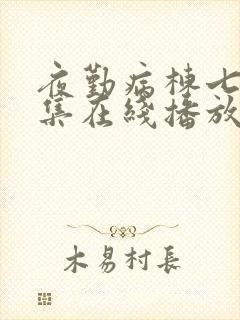 夜勤病棟七
集在綫播放
木易村長